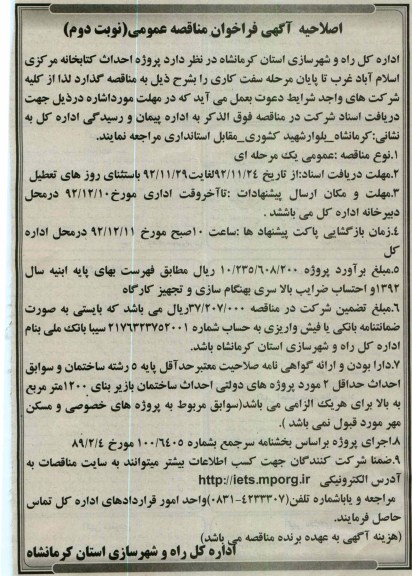 اصلاحیه آگهی فراخوان مناقصه عمومی(نوبت دوم)
اداره کل راه و شهرسازی استان کرمانشاه در نظر دارد پروژه احداث کتابخانه مرکزی
اسلام آباد غرب تا پایان مرحله سفت کاری را بشرح ذیل به مناقصه گذارد لذا از کلیه
شرکت های واجد شرایط دعوت بعمل می آید که در مهلت مورداشاره درذیل جهت
دریافت اسناد شرکت در مناقصه فوق الذکر به اداره پیمان و رسیدگی اداره کل به
نشانی:کرمانشاه_بلوارشهید کشوری_مقابل استانداری مراجعه نمایند.
۱.نوع مناقصه :عمومی یک مرحله ای
۲.مهلت دریافت اسناد:از تاریخ ۹۲/۱۱/۲۴لغایت۹۲/۱۱/۲۹ باستثنای روز های تعطیل
۳.مهلت و مکان ارسال پیشنهادات :تاآخروقت اداری مورخ۹۲/۱۲/۱۰ درمحل
دبیرخانه اداره کل می باشند .
۴.زمان بازگشایی پاکت پیشنهاد ها :ساعت ۱۰صبح مورخ ۹۲/۱۲/۱۱ درمحل اداره
کل
۵.مبلغ برآورد پروژه ۱۰/۲۳۵/۶۰۸/۲۰۰ ریال مطابق فهرست بهای پایه ابنیه سال
۱۳۹۲و احتساب ضرایب بالا سری بهنگام سازی و تجهیز کارگاه
۶.مبلغ تضمین شرکت در مناقصه ۳۷/۲۰۷/۰۰۰ریال می باشد که بایستی به صورت
ضمانتنامه بانکی یا فیش واریزی به حساب شماره ۲۱۷۶۳۲۳۷۵۲۰۰۱ سیبا بانک ملی بنام
اداره کل راه و شهرسازی استان کرمانشاه باشد.
۷.دارا بودن و ارائه گواهی نامه صلاحیت معتبرحدآقل پایه ۵ رشته ساختمان و سوابق
احداث حداقل ۲ مورد پروژه های دولتی احداث ساختمان بازیر بنای ۱۲۰۰متر مربع
به بالا برای هریک الزامی می باشد(سوابق مربوط به پروژه های خصوصی و مسکن
مهر مورد قبول نمی باشد ).
۸.اجرای پروژه براساس بخشنامه سرجمع بشماره ۱۰۰/۶۴۰۵ مورخ ۸۹/۲/۴
۹.ضمنا شرکت کنندگان جهت کسب اطلاعات بیشتر میتوانند به سایت مناقصات به
آدرس الکترونیکی http://iets.mporg.ir
مراجعه و یاباشماره تلفن(۴۲۳۳۳۰۷-۰۸۳۱)واحد امور قراردادهای اداره کل تماس
حاصل فرمایند.
(هزینه آگهی به عهده برنده مناقصه می باشد)
اداره کل راه و شهرسازی استان کرمانشاه